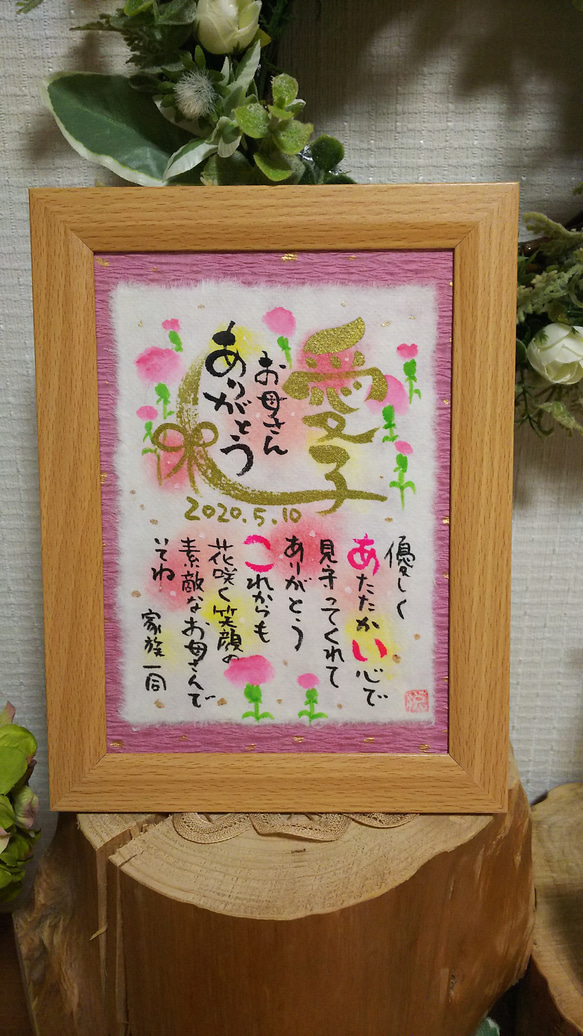 愛子
お母さん
ありがとう
2020.5.10
優しく
あたたかい心で
見守ってくれて
ありがとう
これからも
花咲く笑顔の
素敵なお母さんで
いてね
家族一同